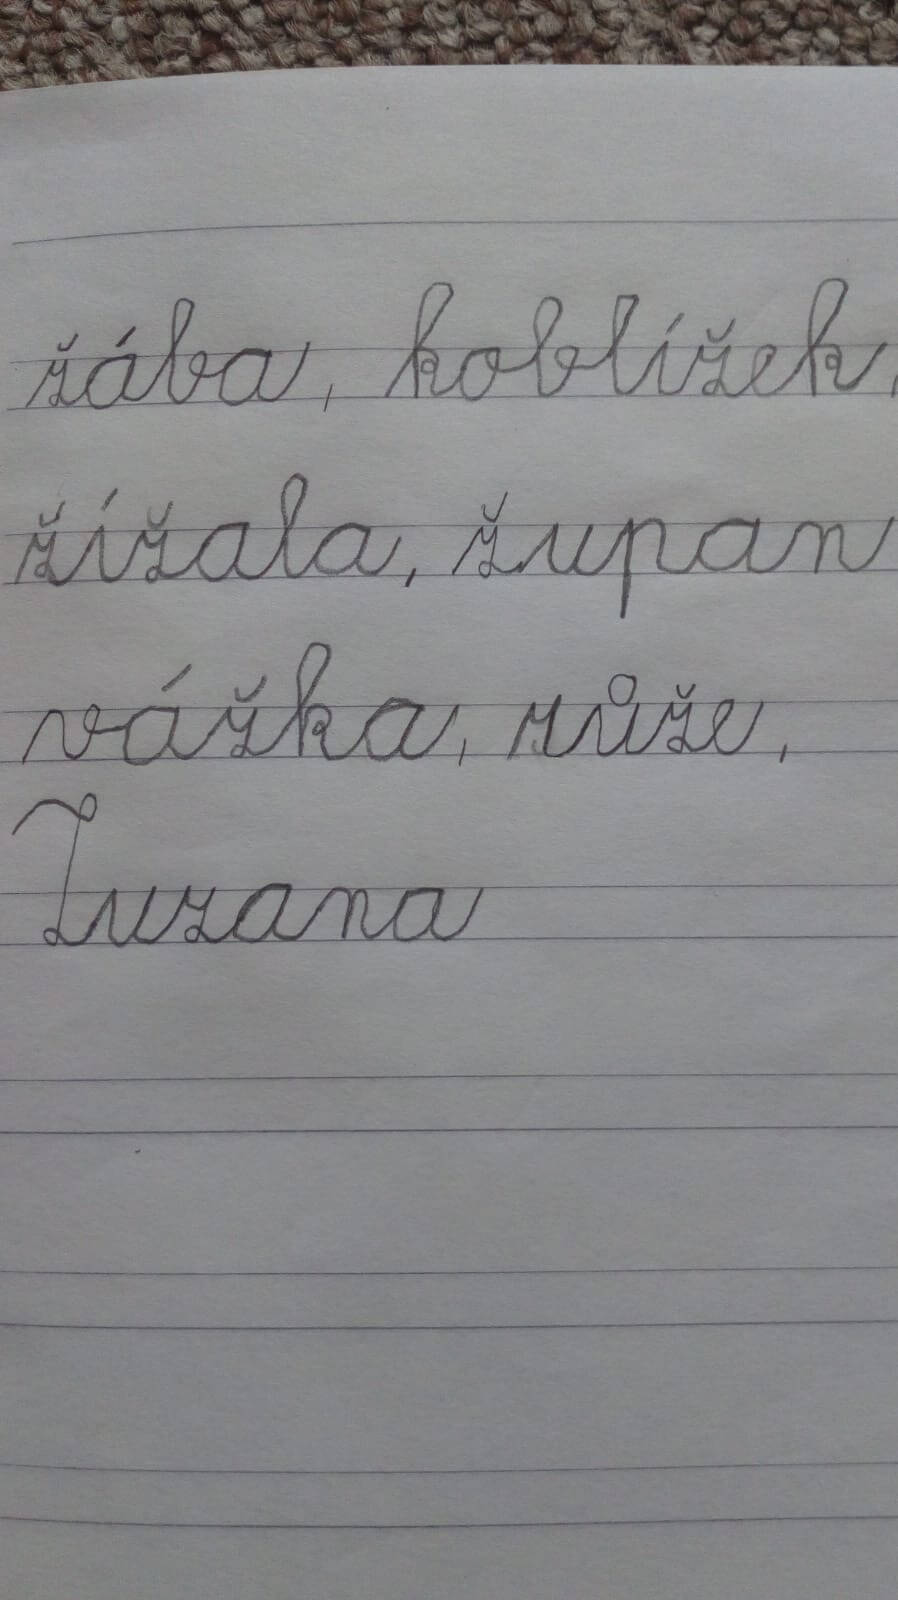 žába, koblížek,
žížala, župan
vážka, růže,
Zuzana